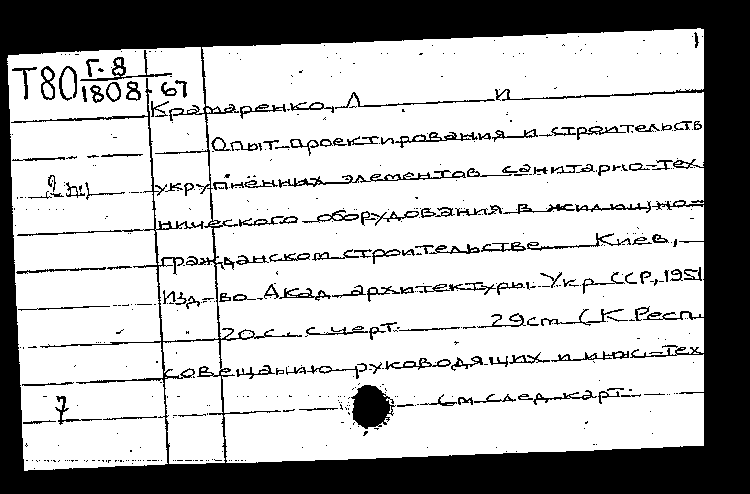 1
Т80 Г-8
1808-67
Крамаренко, Л И
Опыт проектирования и строительств
2
укрупнённых элементов санитарно-тех
нического оборудования в жилищно=
гражданском строительстве Киев,
Изд-во Акад архитектуры Укр ССР, 1951
20с. с черт. 29см (К Респ.
совещанию руководящих и инж-тех
7
См след карт.